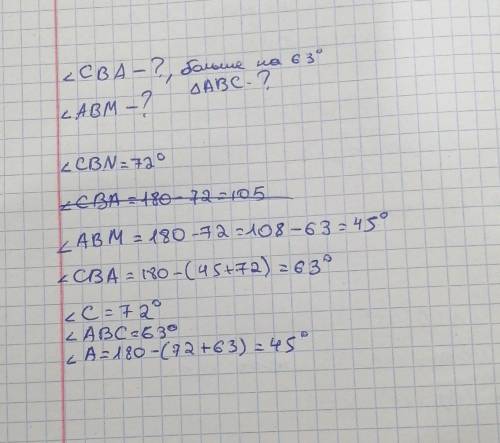 ∠CBA - ?, больше на 63°
∠ABM - ? △ABC - ?
∠CBN = 72°
∠CBA = 180 - 72 = 105
∠ABM = 180 - 72 = 108 - 63 = 45°
∠CBA = 180 - (45+72) = 63°
∠C = 72°
∠ABC = 63°
∠A = 180 - (72 + 63) = 45°